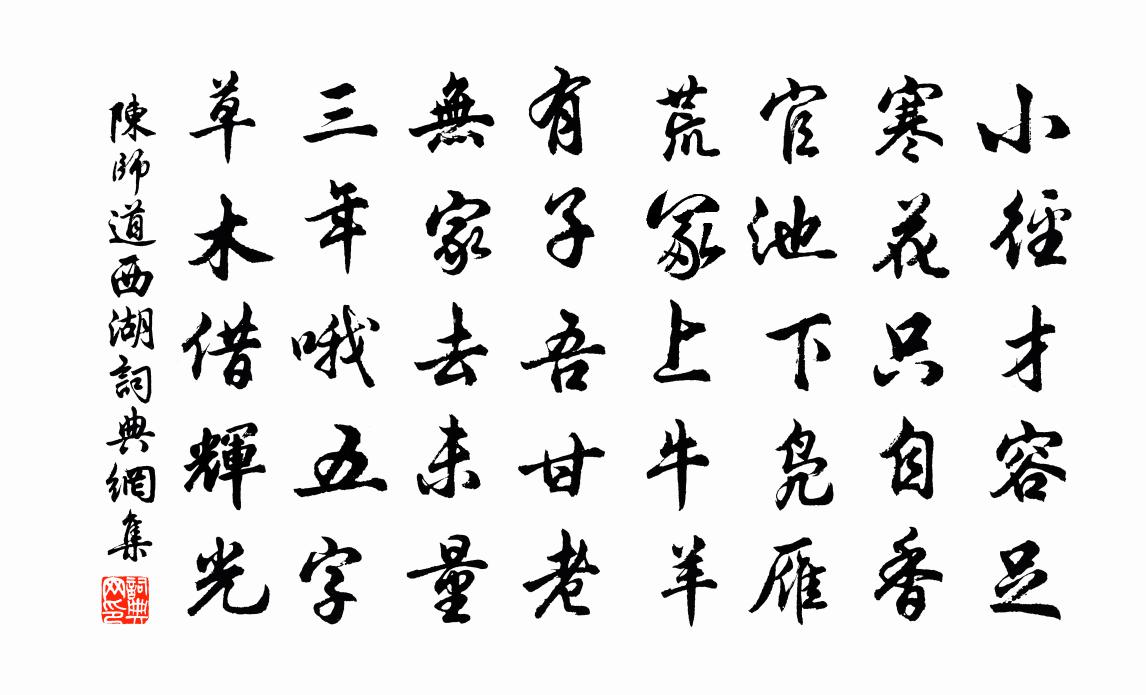 小徑才容足
寒花只自香
官池下鳧雁
荒冢上牛羊
有子吾甘老
無家去未量
三年哦五字
草木借輝光
陳師道西湖詞典網集
詞典網印